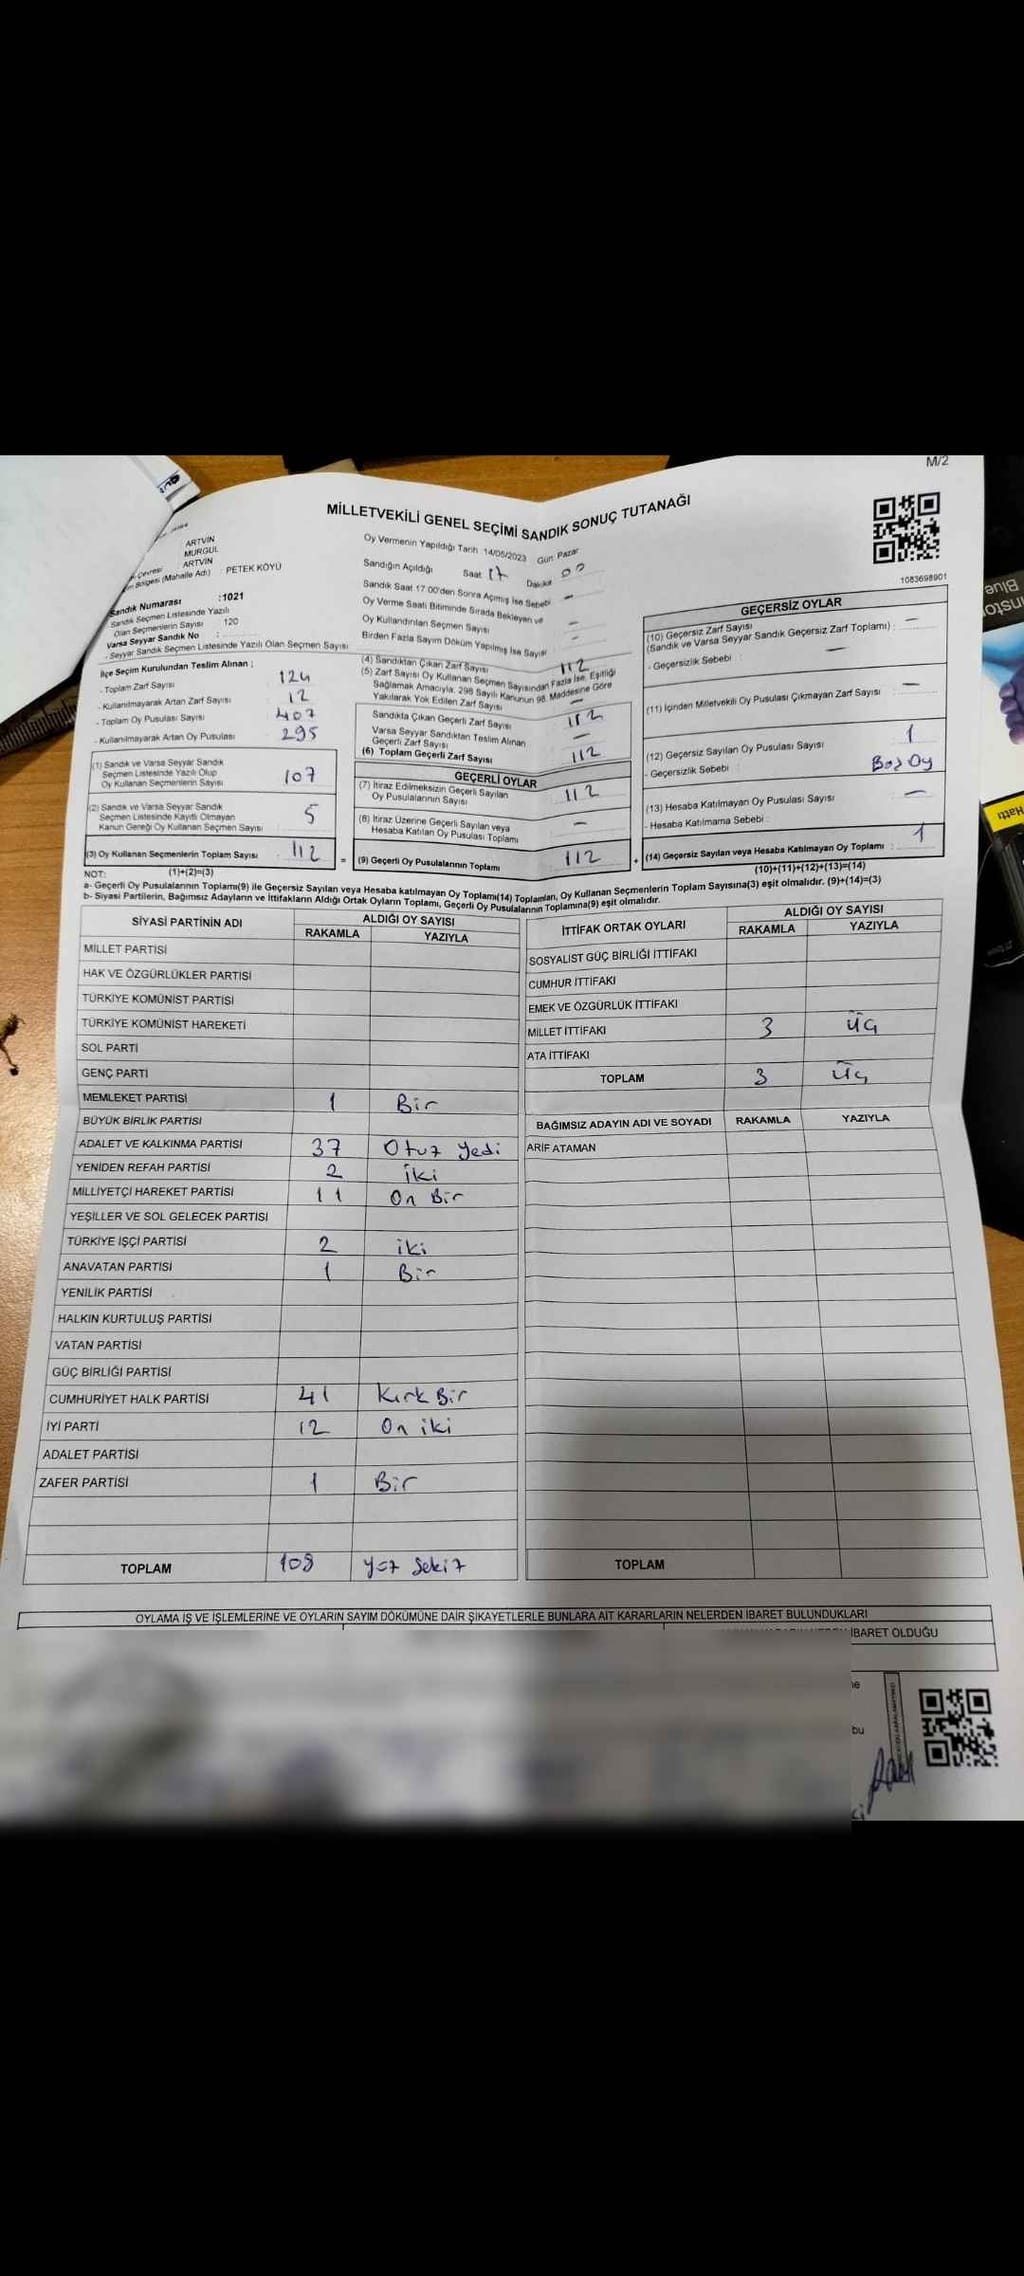 M/2
MİLLETVEKİLİ GENEL SEÇİMİ SANDIK SONUÇ TUTANAĞI
1083698901
ARTVİN
MURGUL
ARTVİN
Bölgesi (Mahalle Adı) PETEK KÖYÜ
Sandık Numarası :1021
Sandık Seçmen Listesinde Yazılı
Olan Seçmenlerin Sayısı 120
Varsa Seyyar Sandık No :
- Seyyar Sandık Seçmen Listesinde Yazılı Olan Seçmen Sayısı
Oy Vermenin Yapıldığı Tarih 14/05/2023 Gün Pazar
Sandığın Açıldığı Saat 17 Dakika 00
Sandık Saat 17.00'den Sonra Açılmış İse Sebebi -
Oy Verme Saati Bitiminde Sırada Bekleyen ve
Oy Kullandırılan Seçmen Sayısı -
Birden Fazla Sayım Döküm Yapılmış İse Sayısı -
İlçe Seçim Kurulundan Teslim Alınan :
- Toplam Zarf Sayısı 124
- Kullanılmayarak Artan Zarf Sayısı 12
- Toplam Oy Pusulası Sayısı 407
- Kullanılmayarak Artan Oy Pusulası 295
(1) Sandık ve Varsa Seyyar Sandık
Seçmen Listesinde Yazılı Olup
Oy Kullanan Seçmenlerin Sayısı 107
(2) Sandık ve Varsa Seyyar Sandık
Seçmen Listesinde Kayıtlı Olmayan
Kanun Gereği Oy Kullanan Seçmen Sayısı 5
(3) Oy Kullanan Seçmenlerin Toplam Sayısı 112
(4) Sandıktan Çıkan Zarf Sayısı 112
(5) Zarf Sayısı Oy Kullanan Seçmen Sayısından Fazla İse, Eşitliği
Sağlamak Amacıyla, 298 Sayılı Kanunun 98. Maddesine Göre
Yakılarak Yok Edilen Zarf Sayısı -
Sandıkta Çıkan Geçerli Zarf Sayısı 112
Varsa Seyyar Sandıktan Teslim Alınan
Geçerli Zarf Sayısı -
(6) Toplam Geçerli Zarf Sayısı 112
GEÇERLİ OYLAR
(7) İtiraz Edilmeksizin Geçerli Sayılan
Oy Pusulalarının Sayısı 112
(8) İtiraz Üzerine Geçerli Sayılan veya
Hesaba Katılan Oy Pusulası Toplamı -
= (9) Geçerli Oy Pusulalarının Toplamı 112
GEÇERSİZ OYLAR
(10) Geçersiz Zarf Sayısı
(Sandık ve Varsa Seyyar Sandık Geçersiz Zarf Toplamı) : -
- Geçersizlik Sebebi : -
(11) İçinden Milletvekili Oy Pusulası Çıkmayan Zarf Sayısı -
(12) Geçersiz Sayılan Oy Pusulası Sayısı 1
- Geçersizlik Sebebi : Boş Oy
(13) Hesaba Katılmayan Oy Pusulası Sayısı -
- Hesaba Katılmama Sebebi :
+ (14) Geçersiz Sayılan veya Hesaba Katılmayan Oy Toplamı : 1
NOT: (1)+(2)=(3)
(10)+(11)+(12)+(13)=(14)
a- Geçerli Oy Pusulalarının Toplamı(9) ile Geçersiz Sayılan veya Hesaba katılmayan Oy Toplamı(14) Toplamları, Oy Kullanan Seçmenlerin Toplam Sayısına(3) eşit olmalıdır. (9)+(14)=(3)
b- Siyasi Partilerin, Bağımsız Adayların ve İttifakların Aldığı Ortak Oyların Toplamı, Geçerli Oy Pusulalarının Toplamına(9) eşit olmalıdır.
SİYASİ PARTİNİN ADI ALDIĞI OY SAYISI
RAKAMLA YAZIYLA
MİLLET PARTİSİ
HAK VE ÖZGÜRLÜKLER PARTİSİ
TÜRKİYE KOMÜNİST PARTİSİ
TÜRKİYE KOMÜNİST HAREKETİ
SOL PARTİ
GENÇ PARTİ
MEMLEKET PARTİSİ 1 Bir
BÜYÜK BİRLİK PARTİSİ
ADALET VE KALKINMA PARTİSİ 37 Otuz Yedi
YENİDEN REFAH PARTİSİ 2 İki
MİLLİYETÇİ HAREKET PARTİSİ 11 On Bir
YEŞİLLER VE SOL GELECEK PARTİSİ
TÜRKİYE İŞÇİ PARTİSİ 2 iki
ANAVATAN PARTİSİ 1 Bir
YENİLİK PARTİSİ
HALKIN KURTULUŞ PARTİSİ
VATAN PARTİSİ
GÜÇ BİRLİĞİ PARTİSİ
CUMHURİYET HALK PARTİSİ 41 Kırk Bir
İYİ PARTİ 12 On iki
ADALET PARTİSİ
ZAFER PARTİSİ 1 Bir
TOPLAM 108 Yüz Sekiz
İTTİFAK ORTAK OYLARI ALDIĞI OY SAYISI
RAKAMLA YAZIYLA
SOSYALİST GÜÇ BİRLİĞİ İTTİFAKI
CUMHUR İTTİFAKI
EMEK VE ÖZGÜRLÜK İTTİFAKI
MİLLET İTTİFAKI 3 Üç
ATA İTTİFAKI
TOPLAM 3 Üç
BAĞIMSIZ ADAYIN ADI VE SOYADI RAKAMLA YAZIYLA
ARİF ATAMAN
TOPLAM
OYLAMA İŞ VE İŞLEMLERİNE VE OYLARIN SAYIM DÖKÜMÜNE DAİR ŞİKAYETLERLE BUNLARA AİT KARARLARIN NELERDEN İBARET BULUNDUKLARI
İBARET OLDUĞU
bu
Blue
Hattı